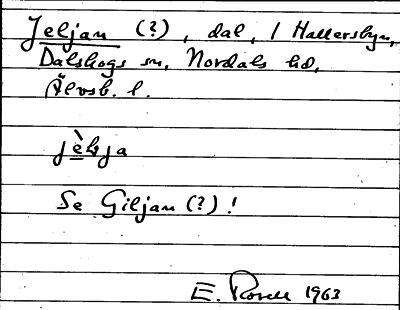 Jeljan (?), dal, i Hallersbyn,
Dalskogs sn, Nordals hd,
Älvsb. l.
Se Giljan (?)!
E. 1963